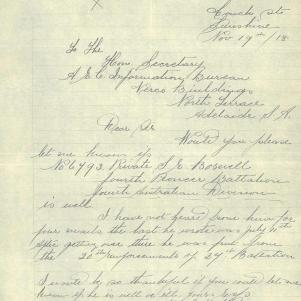 Couch St
Sunshine
Nov 19th/18
To The
Hon. Secretary
A.I.F. Information Bureau
Verco Buildings
North Terrace
Adelaide S.A.
Dear Sir
Would you please
let me know if
No 6793 Private J. E. Boswell
Fourth Pioneer Battalion
Fourth Australian Division
is well
I have not heard from him for
four months the last he wrote was July 11th
after getting over there he was put from
the 20th reinforcements of 27th Battalion
I would be so thankful if you could let me
know if he is well or ill. yours try